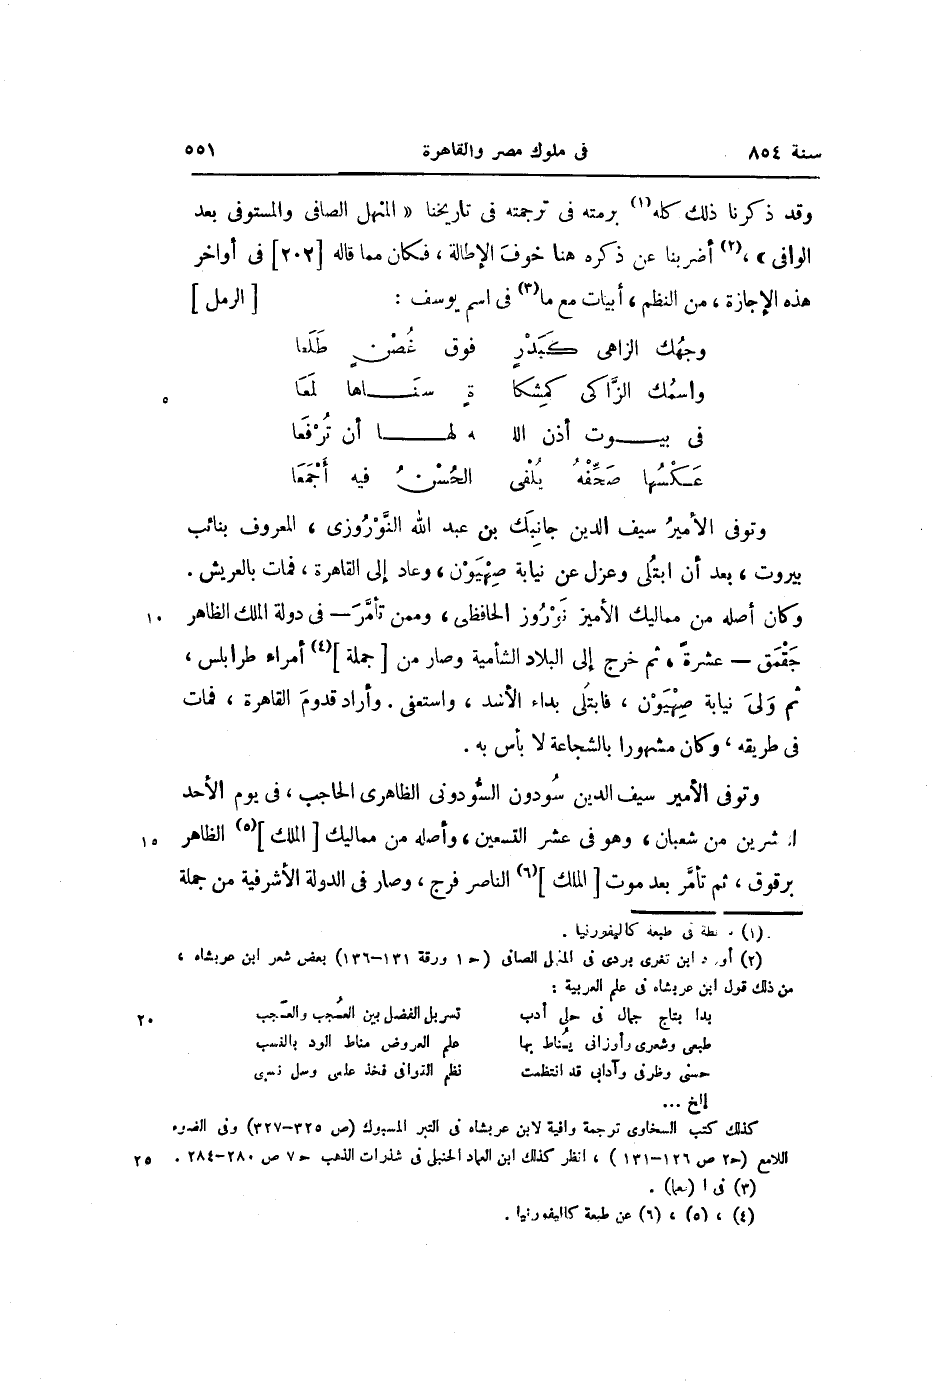 سنة ٨٥٤ فى ملوك مصر والقاهرة ٥٥١
وقد ذكرنا ذلك كله(١) برمته فى ترجمته فى تاريخنا « المنهل الصافى والمستوفى بعد
الوافى » ،(٢) أضربنا عن ذكره هنا خوفَ الإطالة ، فكان مما قاله [٢٠٢] فى أواخر
هذه الإجازة ، من النظم ، أبيات مع ما(٣) فى اسم يوسف : [ الرمل ]
وجهُك الزاهى كَبَدْرٍ فوق غُصْنٍ طَلَعا
واسمُك الزَّاكى كمِشكا ةٍ سنَاها لَمَعَا ٥
فى بيوت أذن الل ه لها أن تُرْفَعا
عَكْسُها صَحِّفْهُ يُلْفى الحُسْنُ فيه أَجْمَعَا
وتوفى الأميرُ سيف الدين جانِبَك بن عبد الله النَّوْرُوزى ، المعروف بنائب
بيروت ، بعد أن ابتُلى وعزل عن نيابة صِهْيَوْن ، وعاد إلى القاهرة ، فمات بالعريش .
وكان أصله من مماليك الأمير نَوْرُوز الحافظى ، وممن تأمَّرَ — فى دولة الملك الظاهر ١٠
جَقْمَق — عشرةً ، ثم خرج إلى البلاد الشأمية وصار من [ جملة ](٤) أمراء طرابلس ،
ثم وَلىَ نيابة صِهْيَوْن ، فابتُلى بداء الأسد ، واستعفى . وأراد قدومَ القاهرة ، فمات
فى طريقه ، وكان مشهورا بالشجاعة لا بأس به .
وتوفى الأمير سيف الدين سُودون السُّودونى الظاهرى الحاجب ، فى يوم الأحد
شرين من شعبان ، وهو فى عشر التسعين ، وأصله من مماليك [ الملك ](٥) الظاهر ١٥
برقوق ، ثم تأمَّر بعد موت [ الملك ](٦) الناصر فرج ، وصار فى الدولة الأشرفية من جملة
(١) نطة فى طبعة كاليفورنيا .
(٢) ابن تغرى بردى فى المنهل الصافى (ح ١ ورقة ١٣١–١٣٦) بعض شعر ابن عربشاه ،
من ذلك قول ابن عربشاه فى علم العربية :
بدا بتاج جمال فى حلى أدب تسربل الفضل بين العُجب والعَجب ٢٠
طبعى وشعرى وأوزانى يُناط بها علم العروض مناط الود بالنسب
حسنى وظرفى وآدابى قد انتظمت نظم القوافى فخذ علمى وسل نسبى
إلخ ...
كذلك كتب السخاوى ترجمة وافية لابن عربشاه فى التبر المسبوك (ص ٣٢٥–٣٢٧) وفى الضوء
اللامع (ح٢ ص ١٢٦–١٣١ ) ، انظر كذلك ابن العماد الحنبلى فى شذرات الذهب ح ٧ ص ٢٨٠–٢٨٤ . ٢٥
(٣) فى ا (معا) .
(٤) ، (٥) ، (٦) عن طبعة كاليفورنيا .